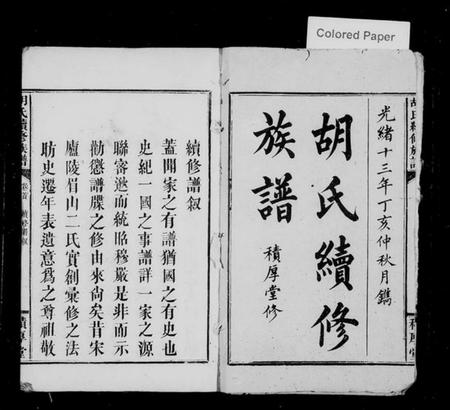 Colored Paper
光緒十三年丁亥仲秋月鐫
胡氏續修
族譜
積厚堂修
胡氏續修族譜
積厚堂
續修譜叙
蓋聞家之有譜猶國之有史也
史紀一國之事譜詳一家之源
聯客邈而統昭穆嚴是非而示
勸懲譜牒之修由來尚矣昔宋
廬陵眉山二氏實創彙修之法
昉史遷年表遺意爲之尊祖敬
胡氏續修族譜
卷首
積厚堂